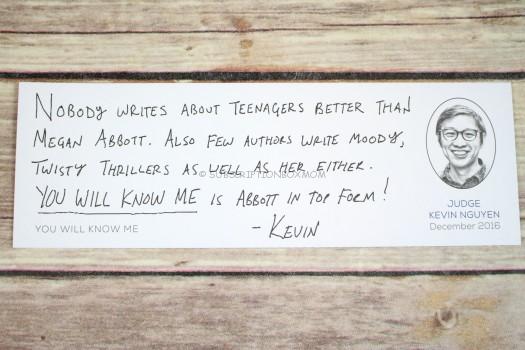 NOBODY WRITES ABOUT TEENAGERS BETTER THAN
MEGAN ABBOTT. ALSO FEW AUTHORS WRITE MOODY,
TWISTY THRILLERS AS WELL AS HER EITHER.
© SUBSCRIPTIONBOXMOM
YOU WILL KNOW ME IS ABBOTT IN TOP FORM!
- KEVIN
YOU WILL KNOW ME
JUDGE
KEVIN NGUYEN
December 2016